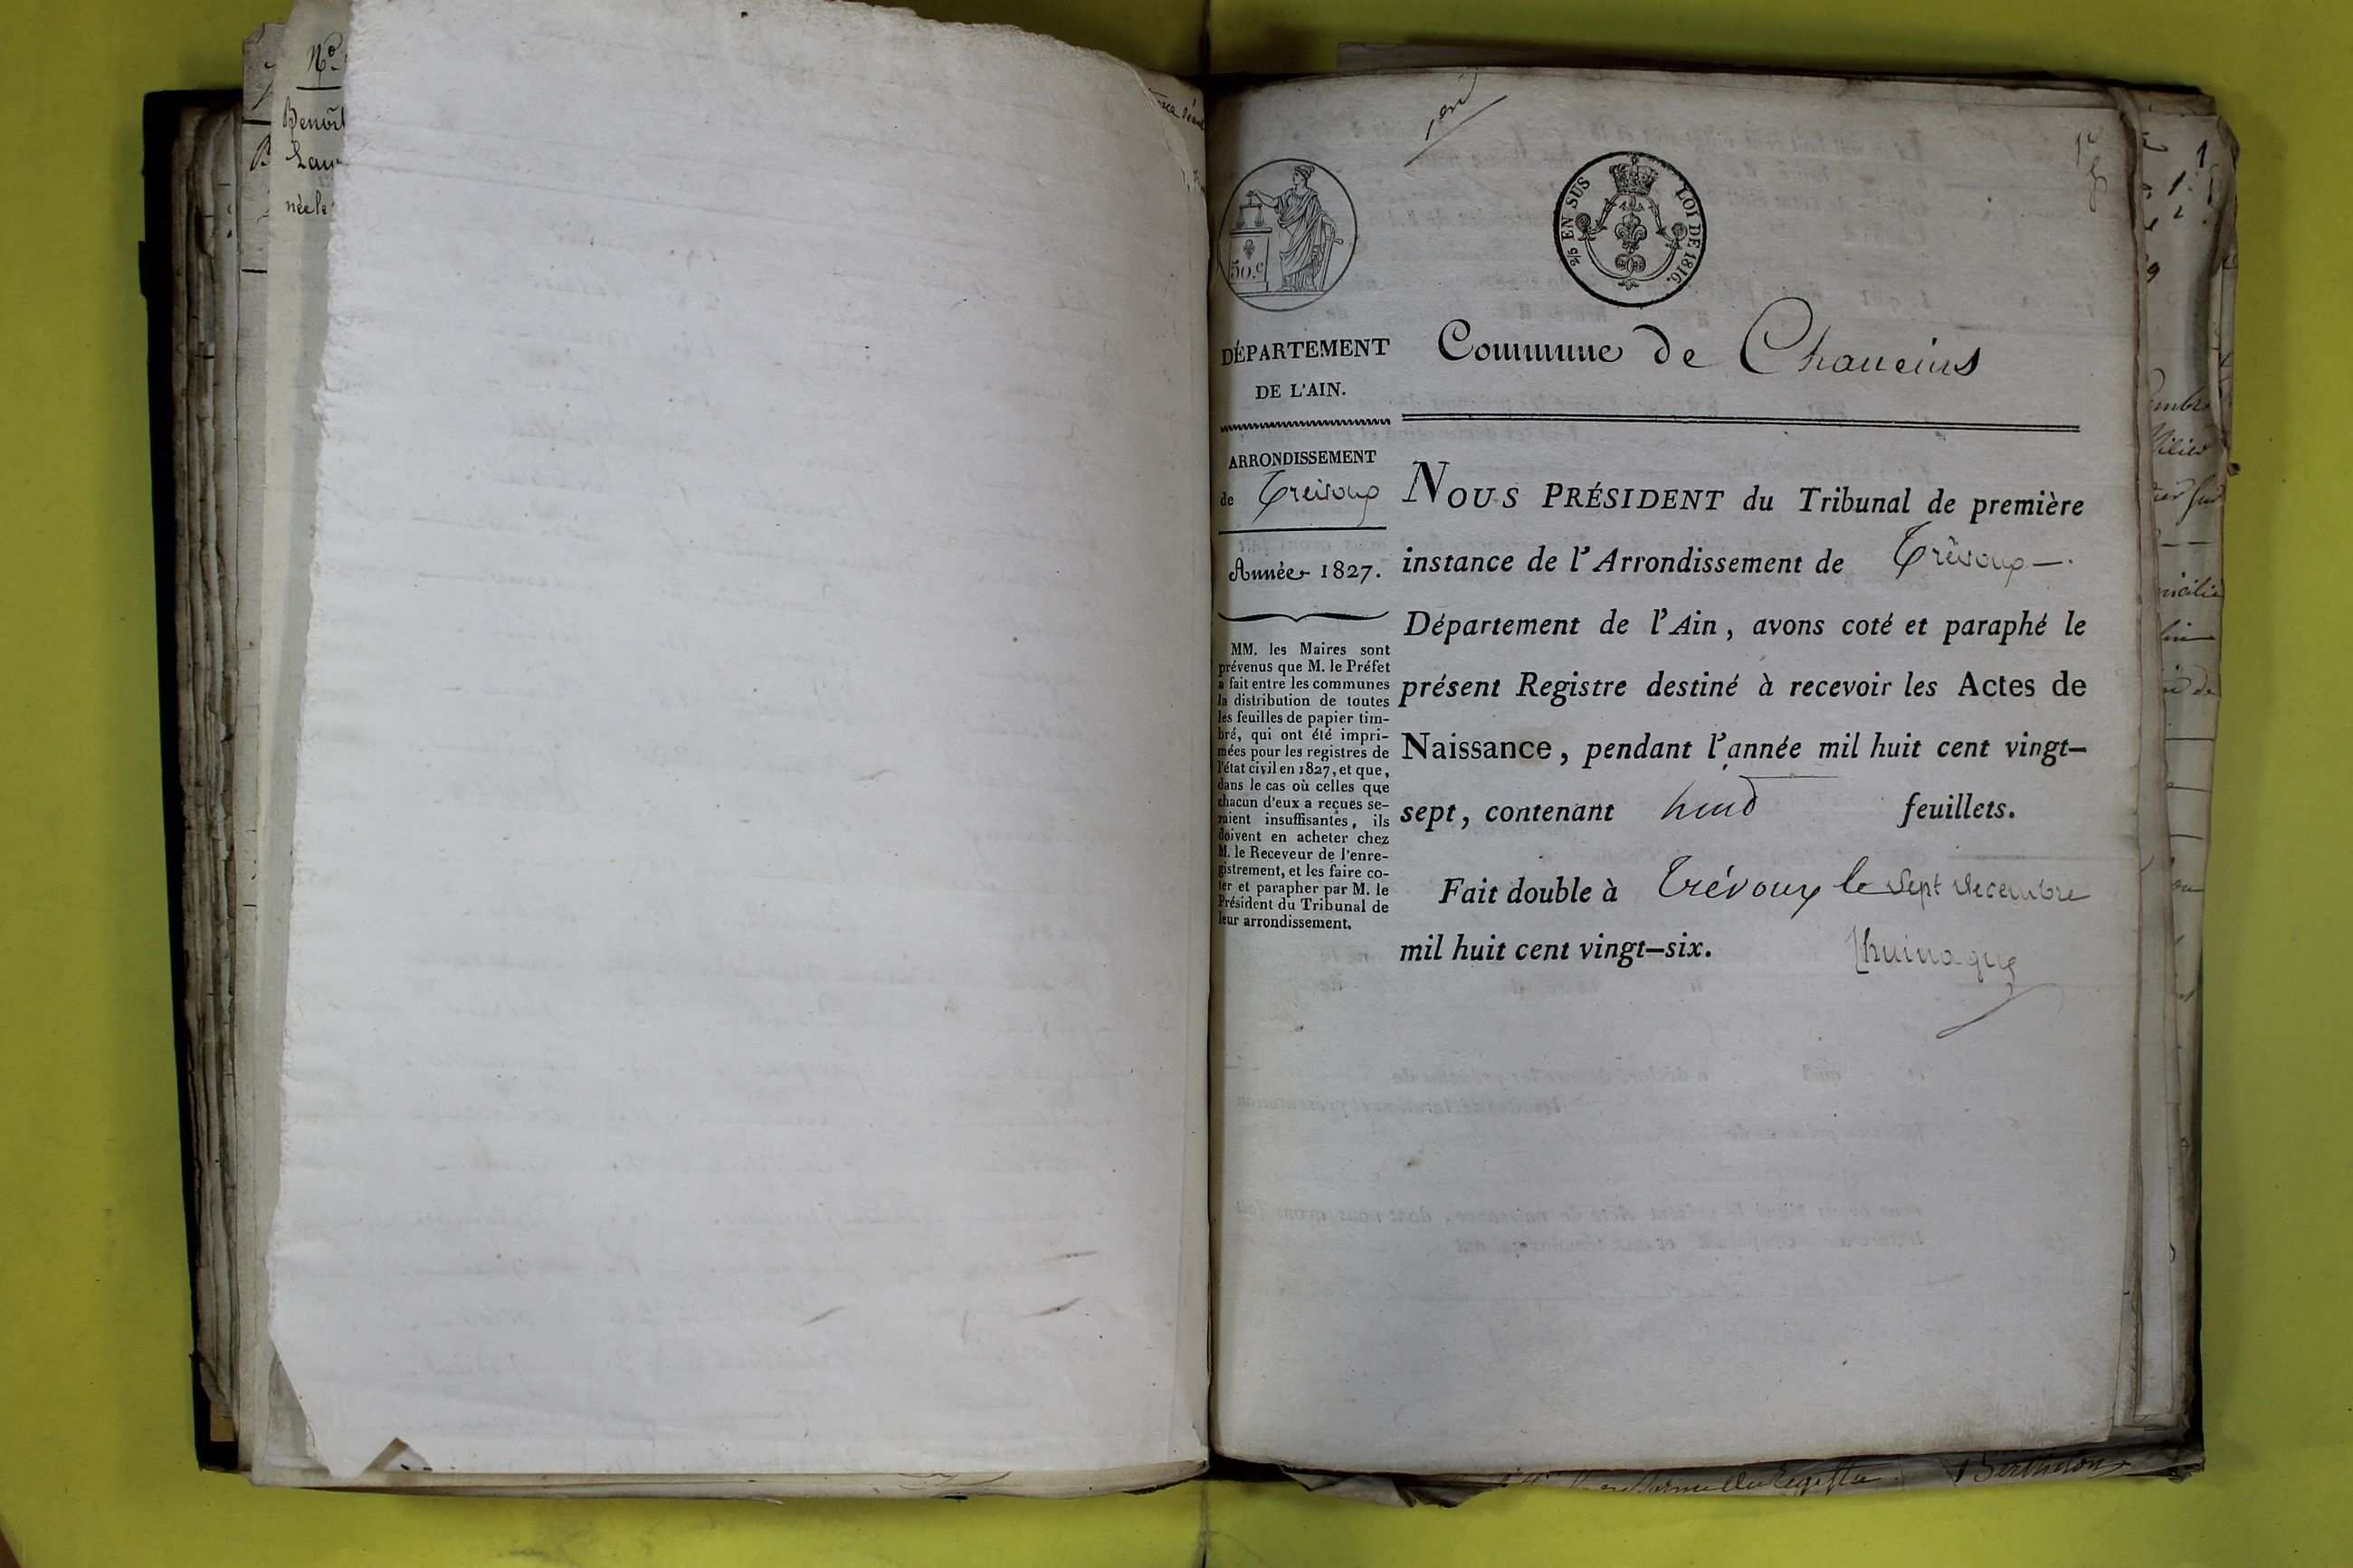 No
Benoît
Lau
née le
B
50.c
2/5 EN SUS LOI DE 1816.
DÉPARTEMENT
DE L'AIN.
ARRONDISSEMENT
de Treivoux
Année 1827.
MM. les Maires sont
prévenus que M. le Préfet
a fait entre les communes
la distribution de toutes
les feuilles de papier tim-
bré, qui ont été impri-
mées pour les registres de
l'état civil en 1827, et que,
dans le cas où celles que
chacun d'eux a reçues se-
raient insuffisantes, ils
doivent en acheter chez
M. le Receveur de l'enre-
gistrement, et les faire co-
ter et parapher par M. le
Président du Tribunal de
leur arrondissement.
Commune de Chaneins
NOUS PRÉSIDENT du Tribunal de première
instance de l'Arrondissement de Trévoux
Département de l'Ain, avons coté et paraphé le
présent Registre destiné à recevoir les Actes de
Naissance, pendant l'année mil huit cent vingt-
sept, contenant huit feuillets.
Fait double à Trévoux le sept decembre
mil huit cent vingt-six.